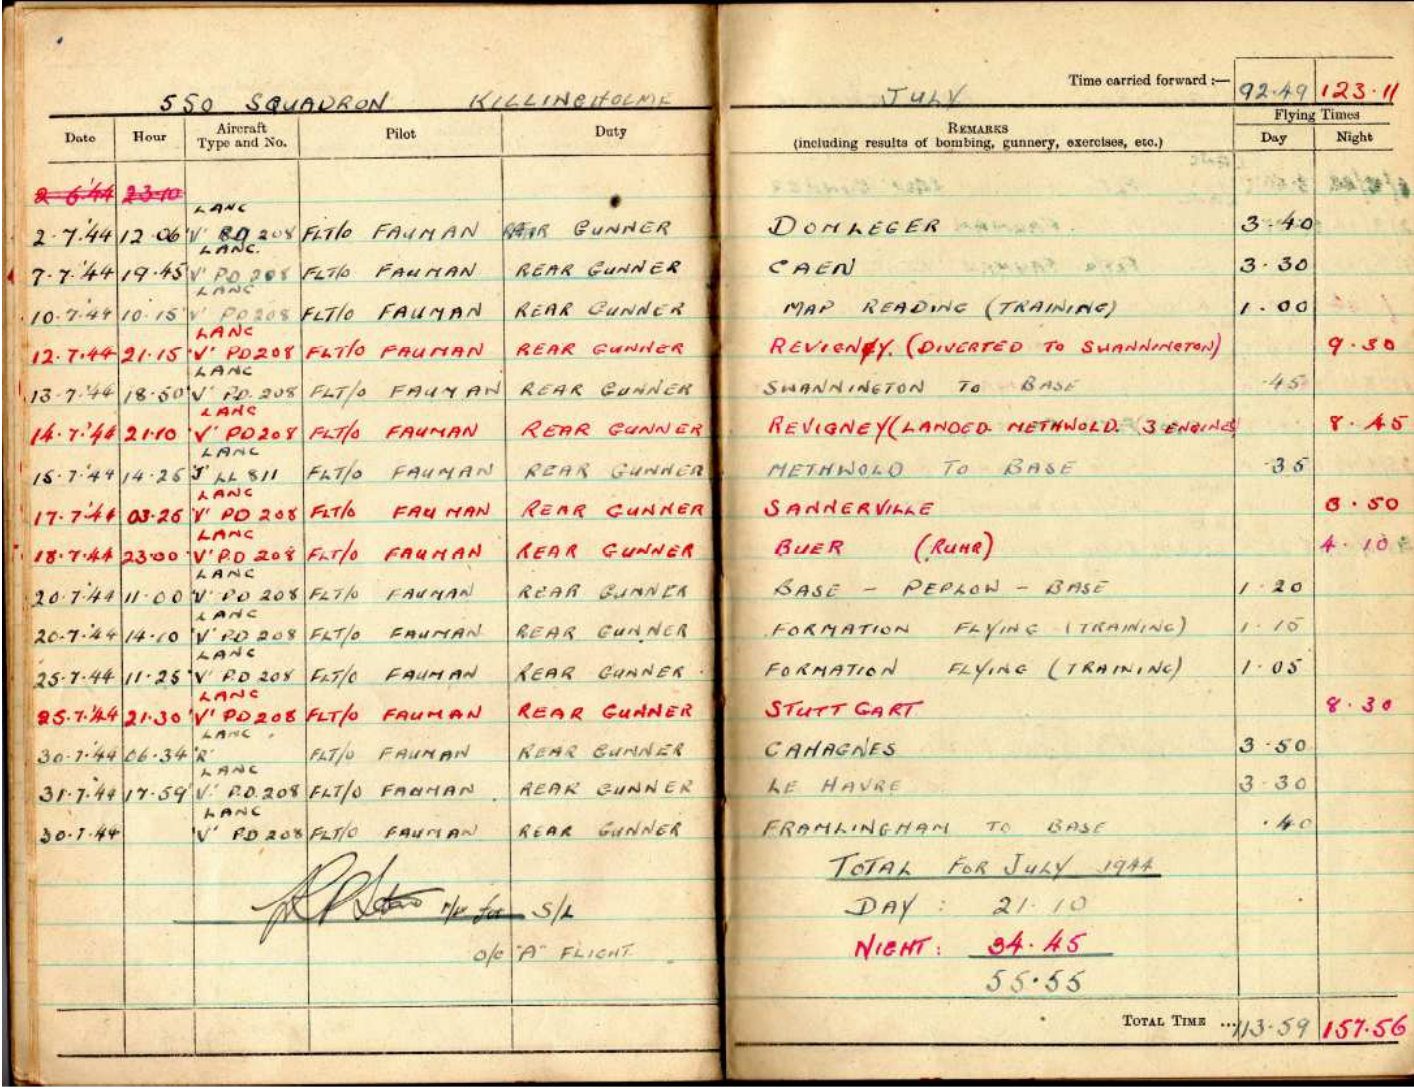 550 SQUADRON KILLINGHOLME JULY Time carried forward :— 92.49 123.11
Flying Times
Date Hour Aircraft Type and No. Pilot Duty REMARKS (including results of bombing, gunnery, exercises, etc.) Day Night
2 6.'44 23.10
2.7.'44 12 06 LANC 'V' PD 208 FLT/O FAUMAN REAR GUNNER DOMLEGER 3.40
7.7.'44 19.45 LANC. 'V' PD 208 FLT/O FAUMAN REAR GUNNER CAEN 3.30
10.7.'44 10.15 LANC 'V' PD 208 FLT/O FAUMAN REAR GUNNER MAP READING (TRAINING) 1.00
12.7.44 21.15 LANC 'V' PD 208 FLT/O FAUMAN REAR GUNNER REVIGNY. (DIVERTED TO SWANNINGTON) 9.30
13.7.'44 18.50 LANC 'V' PD. 208 FLT/O FAUMAN REAR GUNNER SWANNINGTON TO BASE .45
14.7.'44 21.10 LANC 'V' PD 208 FLT/O FAUMAN REAR GUNNER REVIGNEY (LANDED. METHWOLD. (3 ENGINES) 8.45
15.7.'44 14.25 LANC 'J' LL 811 FLT/O FAUMAN REAR GUNNER METHWOLD TO BASE .35
17.7.'44 03.25 LANC 'V' PD 208 FLT/O FAUMAN REAR GUNNER SANNERVILLE 3.50
18.7.44 23.00 LANC 'V' P.D 208 FLT/O FAUMAN REAR GUNNER BUER (RUHR) 4.10
20.7.'44 11.00 LANC 'V' PD 208 FLT/O FAUMAN REAR GUNNER BASE – PEPLOW – BASE 1.20
20.7.'44 14.10 LANC 'V' PD 208 FLT/O FAUMAN REAR GUNNER FORMATION FLYING (TRAINING) 1.15
25.7.44 11.25 LANC 'V' P.D 208 FLT/O FAUMAN REAR GUNNER FORMATION FLYING (TRAINING) 1.05
25.7.'44 21.30 LANC 'V' PD 208 FLT/O FAUMAN REAR GUNNER STUTTGART 8.30
30.7.'44 06.34 LANC. 'R' FLT/O FAUMAN REAR GUNNER CAHAGNES 3.50
31.7.'44 17.59 LANC 'V' P.D. 208 FLT/O FAUMAN REAR GUNNER LE HAVRE 3.30
30.7.44 LANC 'V' PD 208 FLT/O FAUMAN REAR GUNNER FRAMLINGHAM TO BASE .40
TOTAL FOR JULY 1944
for S/L DAY : 21.10
O/C "A" FLIGHT NIGHT : 34.45
55.55
TOTAL TIME ... 113.59 157.56